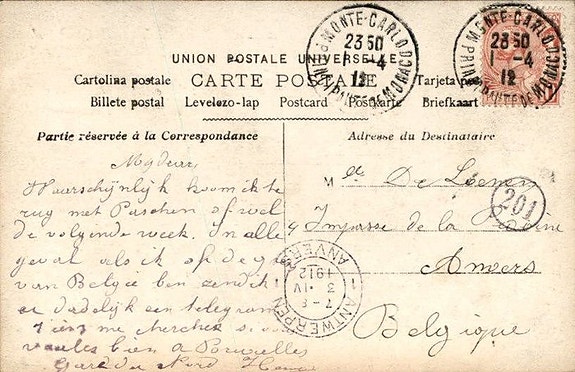 UNION POSTALE UNIVERSELLE
Cartolina postale CARTE POSTALE Tarjeta
Billete postal Levelezo-lap Postcard Postkarte Briefkaart
MONTE-CARLO
23 50
1 -4
12
PRINCIPAUTÉ DE MONACO
MONTE-CARLO
23 50
1 -4
12
PRINCIPAUTÉ DE MONACO
Partie réservée à la Correspondance
Waarschijnlijk koom ik te
rug met Paschen of wel
de volgende week. In alle
geval als ik op de
van België ben zend ik
er dadelijk een telegram
me chercher si
voules bien à Bruxelles
Gare du Nord
Adresse du Destinataire
Melle De
201
4 Impasse de la
Anvers
Belgique
ANTWERPEN
7-8
3 IV
1912
ANVERS